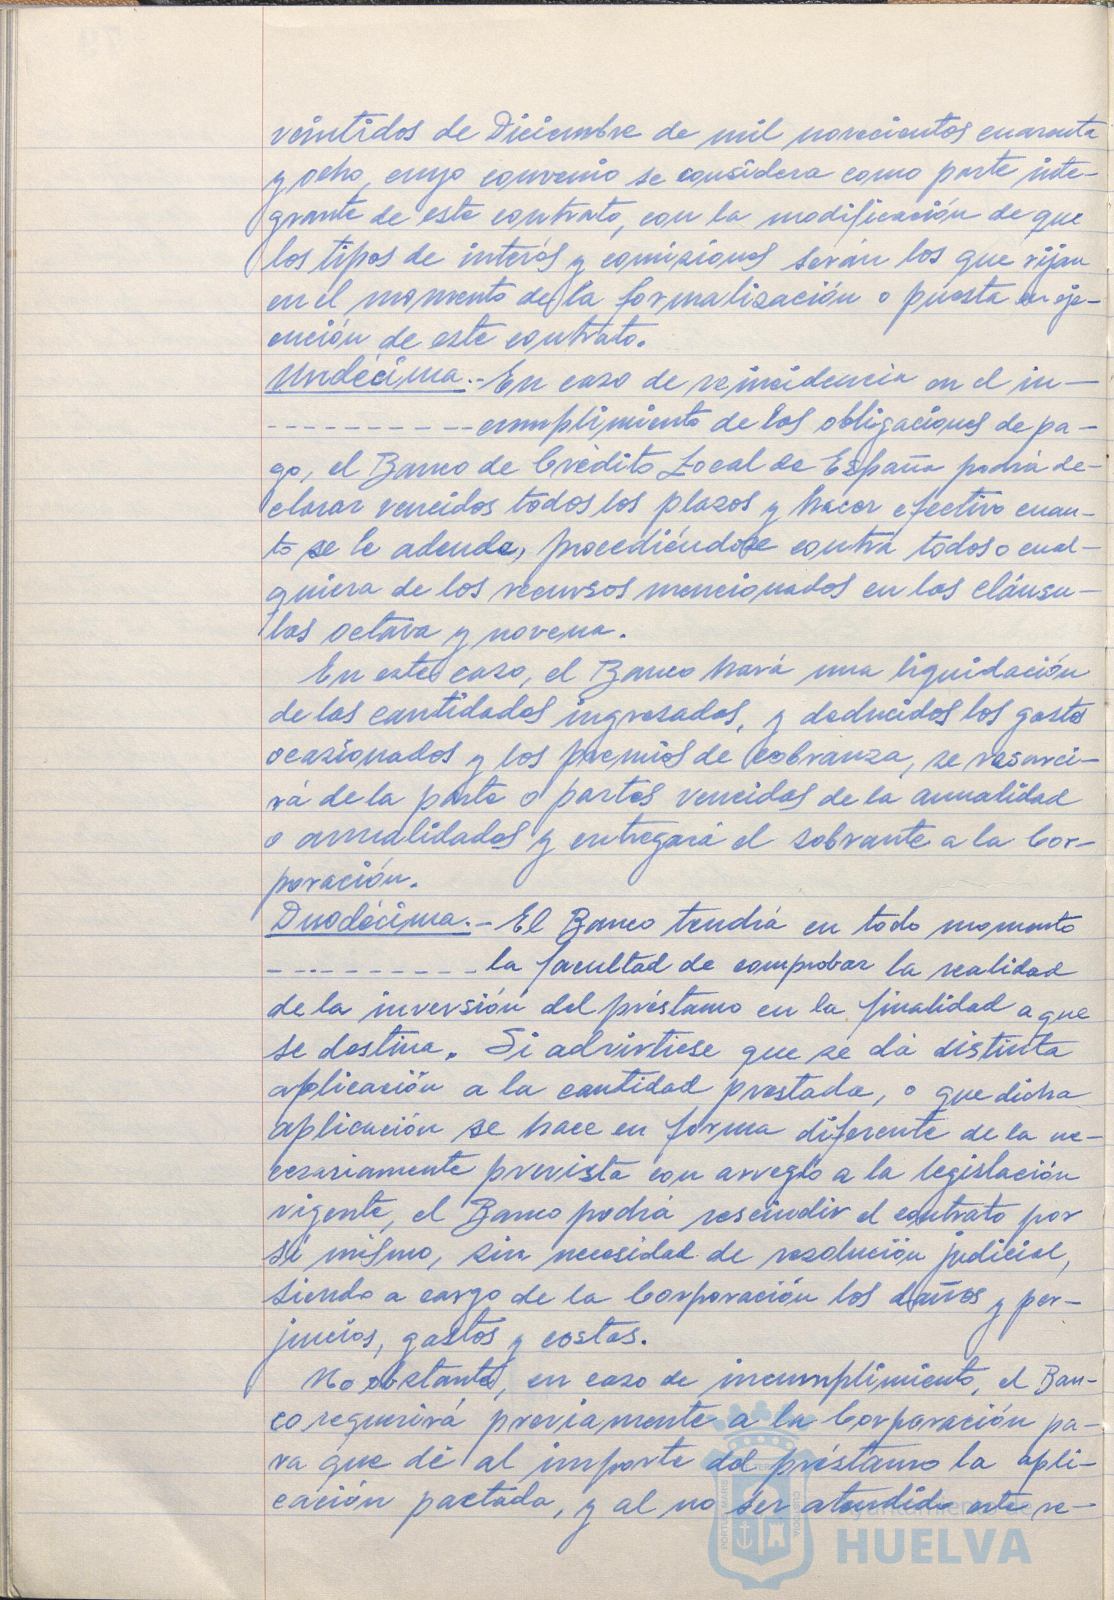 veintidos de Diciembre de mil novecientos cuarenta
y ocho, cuyo convenio se considera como parte inte-
grante de este contrato, con la modificación de que
los tipos de interés y comisiones serán los que rijan
en el momento de la formalización o puesta en eje-
cución de este contrato.
Undécima.- En caso de reincidencia en el in-
---------- cumplimiento de las obligaciones de pa-
go, el Banco de Crédito Local de España podrá de-
clarar vencidos todos los plazos y hacer efectivo cuan-
to se le adende, procediéndose contra todos o cual-
quiera de los recursos mencionados en las cláusu-
las octava y novena.
En este caso, el Banco hará una liquidación
de las cantidades ingresadas, y deducidos los gastos
ocasionados y los premios de cobranza, se resarci-
rá de la parte o partes vencidas de la anualidad
o anualidades y entregará el sobrante a la Cor-
poración.
Duodécima.- El Banco tendrá en todo momento
---------- la facultad de comprobar la realidad
de la inversión del préstamo en la finalidad a que
se destina. Si advirtiese que se dá distinta
aplicación a la cantidad prestada, o que dicha
aplicación se hace en forma diferente de la ne-
cesariamente prevista con arreglo a la legislación
vigente, el Banco podrá rescindir el contrato por
sí mismo, sin necesidad de resolución judicial,
siendo a cargo de la Corporación los daños y per-
juicios, gastos y costas.
No obstante, en caso de incumplimiento, el Ban-
co requerirá previamente a la Corporación pa-
ra que dé al importe del préstamo la apli-
cación pactada, y al no ser atendido este re-
Ayuntamiento de
HUELVA